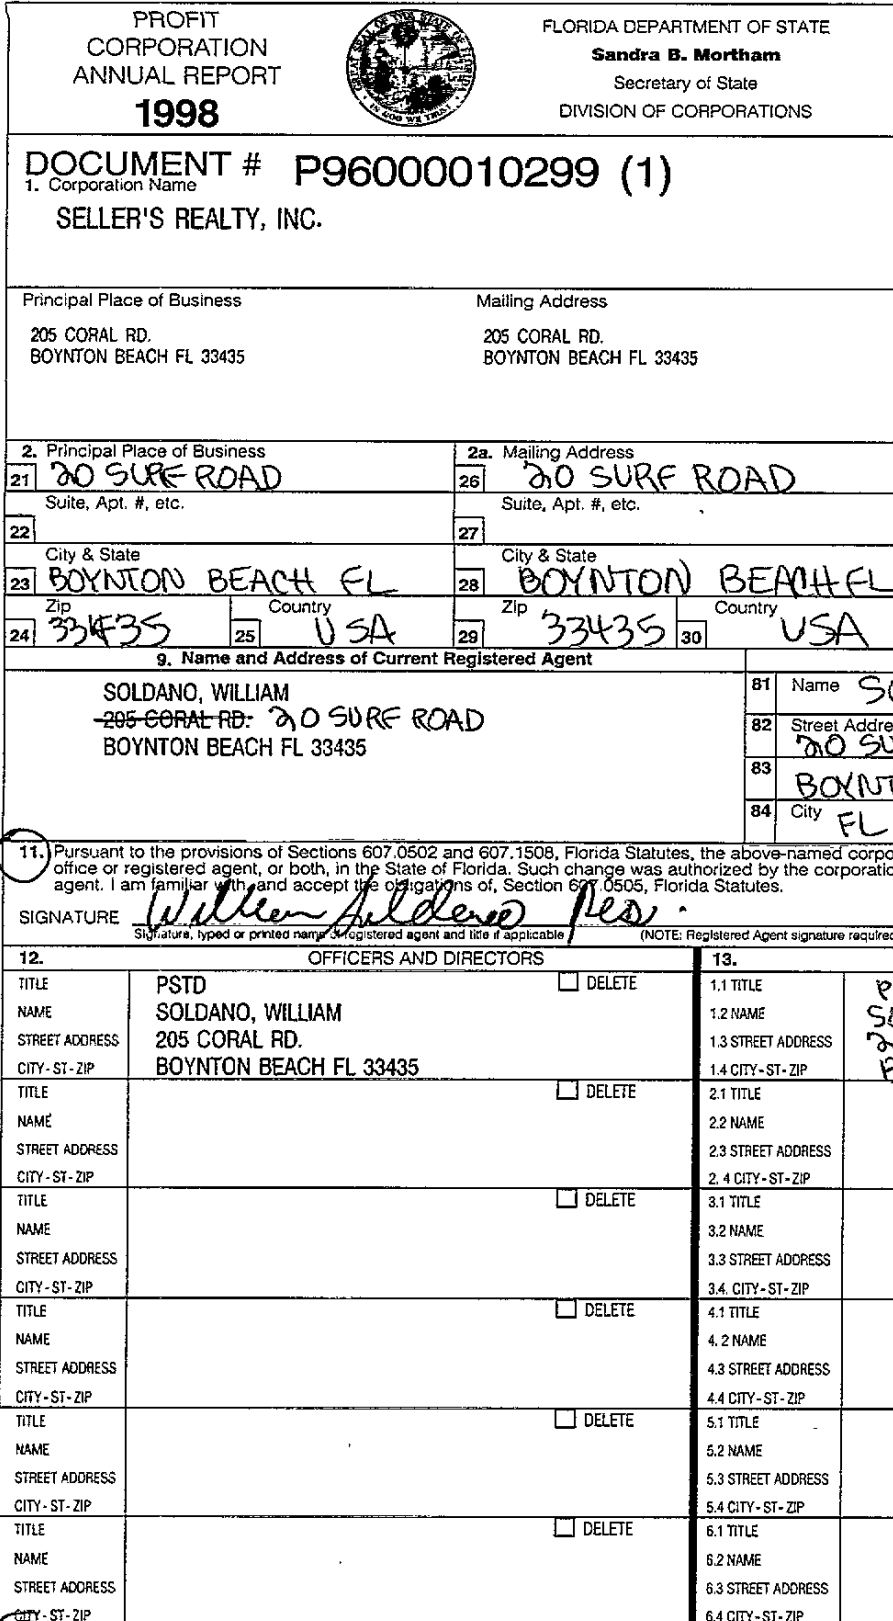 PROFIT
CORPORATION
ANNUAL REPORT
1998
GREAT SEAL OF THE STATE OF FLORIDA
IN GOD WE TRUST
FLORIDA DEPARTMENT OF STATE
Sandra B. Mortham
Secretary of State
DIVISION OF CORPORATIONS
DOCUMENT # P96000010299 (1)
1. Corporation Name
SELLER'S REALTY, INC.
Principal Place of Business
205 CORAL RD.
BOYNTON BEACH FL 33435
Mailing Address
205 CORAL RD.
BOYNTON BEACH FL 33435
2. Principal Place of Business
21 20 SURF ROAD
2a. Mailing Address
26 20 SURF ROAD
Suite, Apt. #, etc.
22
Suite, Apt. #, etc.
27
City & State
23 BOYNTON BEACH FL
City & State
28 BOYNTON BEACH FL
Zip
24 33435
Country
25 USA
Zip
29 33435
Country
30 USA
9. Name and Address of Current Registered Agent
SOLDANO, WILLIAM
205 CORAL RD. 20 SURF ROAD
BOYNTON BEACH FL 33435
81 Name SO
82 Street Addre
20 SU
83
BOYNT
84 City FL
11. Pursuant to the provisions of Sections 607.0502 and 607.1508, Florida Statutes, the above-named corpo
office or registered agent, or both, in the State of Florida. Such change was authorized by the corporatio
agent. I am familiar with, and accept the obligations of, Section 607.0505, Florida Statutes.
SIGNATURE William Soldano Pres.
Signature, typed or printed name of registered agent and title if applicable (NOTE: Registered Agent signature required
12. OFFICERS AND DIRECTORS
13.
TITLE PSTD DELETE
NAME SOLDANO, WILLIAM
STREET ADDRESS 205 CORAL RD.
CITY-ST-ZIP BOYNTON BEACH FL 33435
1.1 TITLE P
1.2 NAME SO
1.3 STREET ADDRESS 2
1.4 CITY-ST-ZIP B
TITLE DELETE
NAME
STREET ADDRESS
CITY-ST-ZIP
2.1 TITLE
2.2 NAME
2.3 STREET ADDRESS
2. 4 CITY-ST-ZIP
TITLE DELETE
NAME
STREET ADDRESS
CITY-ST-ZIP
3.1 TITLE
3.2 NAME
3.3 STREET ADDRESS
3.4. CITY-ST-ZIP
TITLE DELETE
NAME
STREET ADDRESS
CITY-ST-ZIP
4.1 TITLE
4. 2 NAME
4.3 STREET ADDRESS
4.4 CITY-ST-ZIP
TITLE DELETE
NAME
STREET ADDRESS
CITY-ST-ZIP
5.1 TITLE
5.2 NAME
5.3 STREET ADDRESS
5.4 CITY-ST-ZIP
TITLE DELETE
NAME
STREET ADDRESS
CITY-ST-ZIP
6.1 TITLE
6.2 NAME
6.3 STREET ADDRESS
6.4 CITY-ST-ZIP